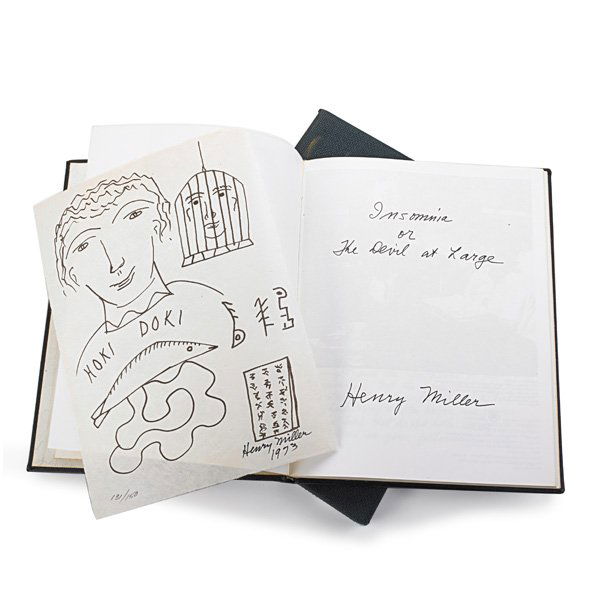 HOKI DOKI
Henry Miller
1973
131/150
Insomnia
or
The Devil at Large
Henry Miller